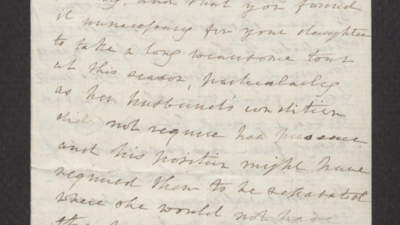 and that you found
it unnecessary for your daughter
to take a long wearisome tour
at this season, particularly
as her husband's condition
did not require her presence
and his position might have
required them to be separated
where she would not have